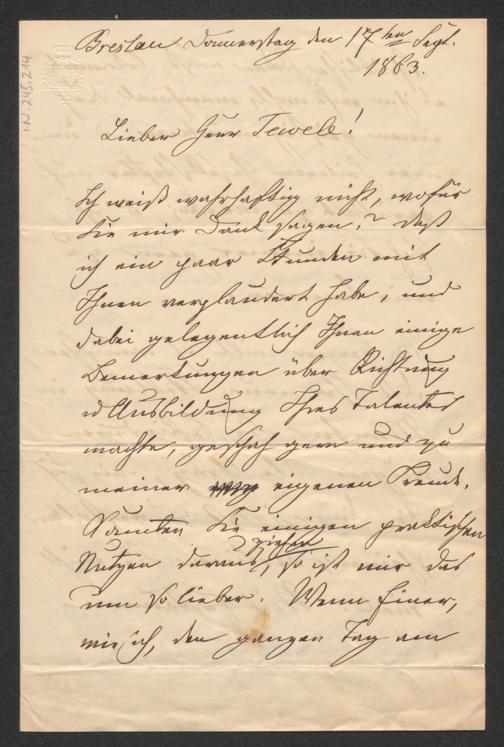 I.N. 245.214
Breslau Donnerstag den 17ten Sept.
1863.
Lieber Herr Tewele!
Ich weiß wahrhaftig nicht, wofür
Sie mir Dank sagen? Daß
ich ein paar Stunden mit
Ihnen verplaudert habe, und
dabei gelegentlich Ihnen einige
Bemerkungen über Richtung
u Ausbildung Ihres Talentes
machte, geschah gern und zu
meiner eigenen Freude.
Konnten Sie einigen praktischen
Nutzen daraus ziehen, so ist mir das
um so lieber. Wenn Einer,
wie ich, den ganzen Tag am